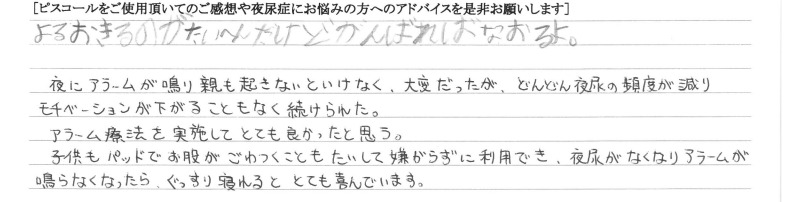 [ピスコールをご使用頂いてのご感想や夜尿症にお悩みの方へのアドバイスを是非お願いします]
よるおきるのがたいへんだけどがんばればなおるよ。
夜にアラームが鳴り親も起きないといけなく、大変だったが、どんどん夜尿の頻度が減り
モチベーションが下がることもなく続けられた。
アラーム療法を実施してとても良かったと思う。
子供もパッドでお股がごわつくこともたいして嫌がらずに利用でき、夜尿がなくなりアラームが
鳴らなくなったら、ぐっすり寝れるととても喜んでいます。